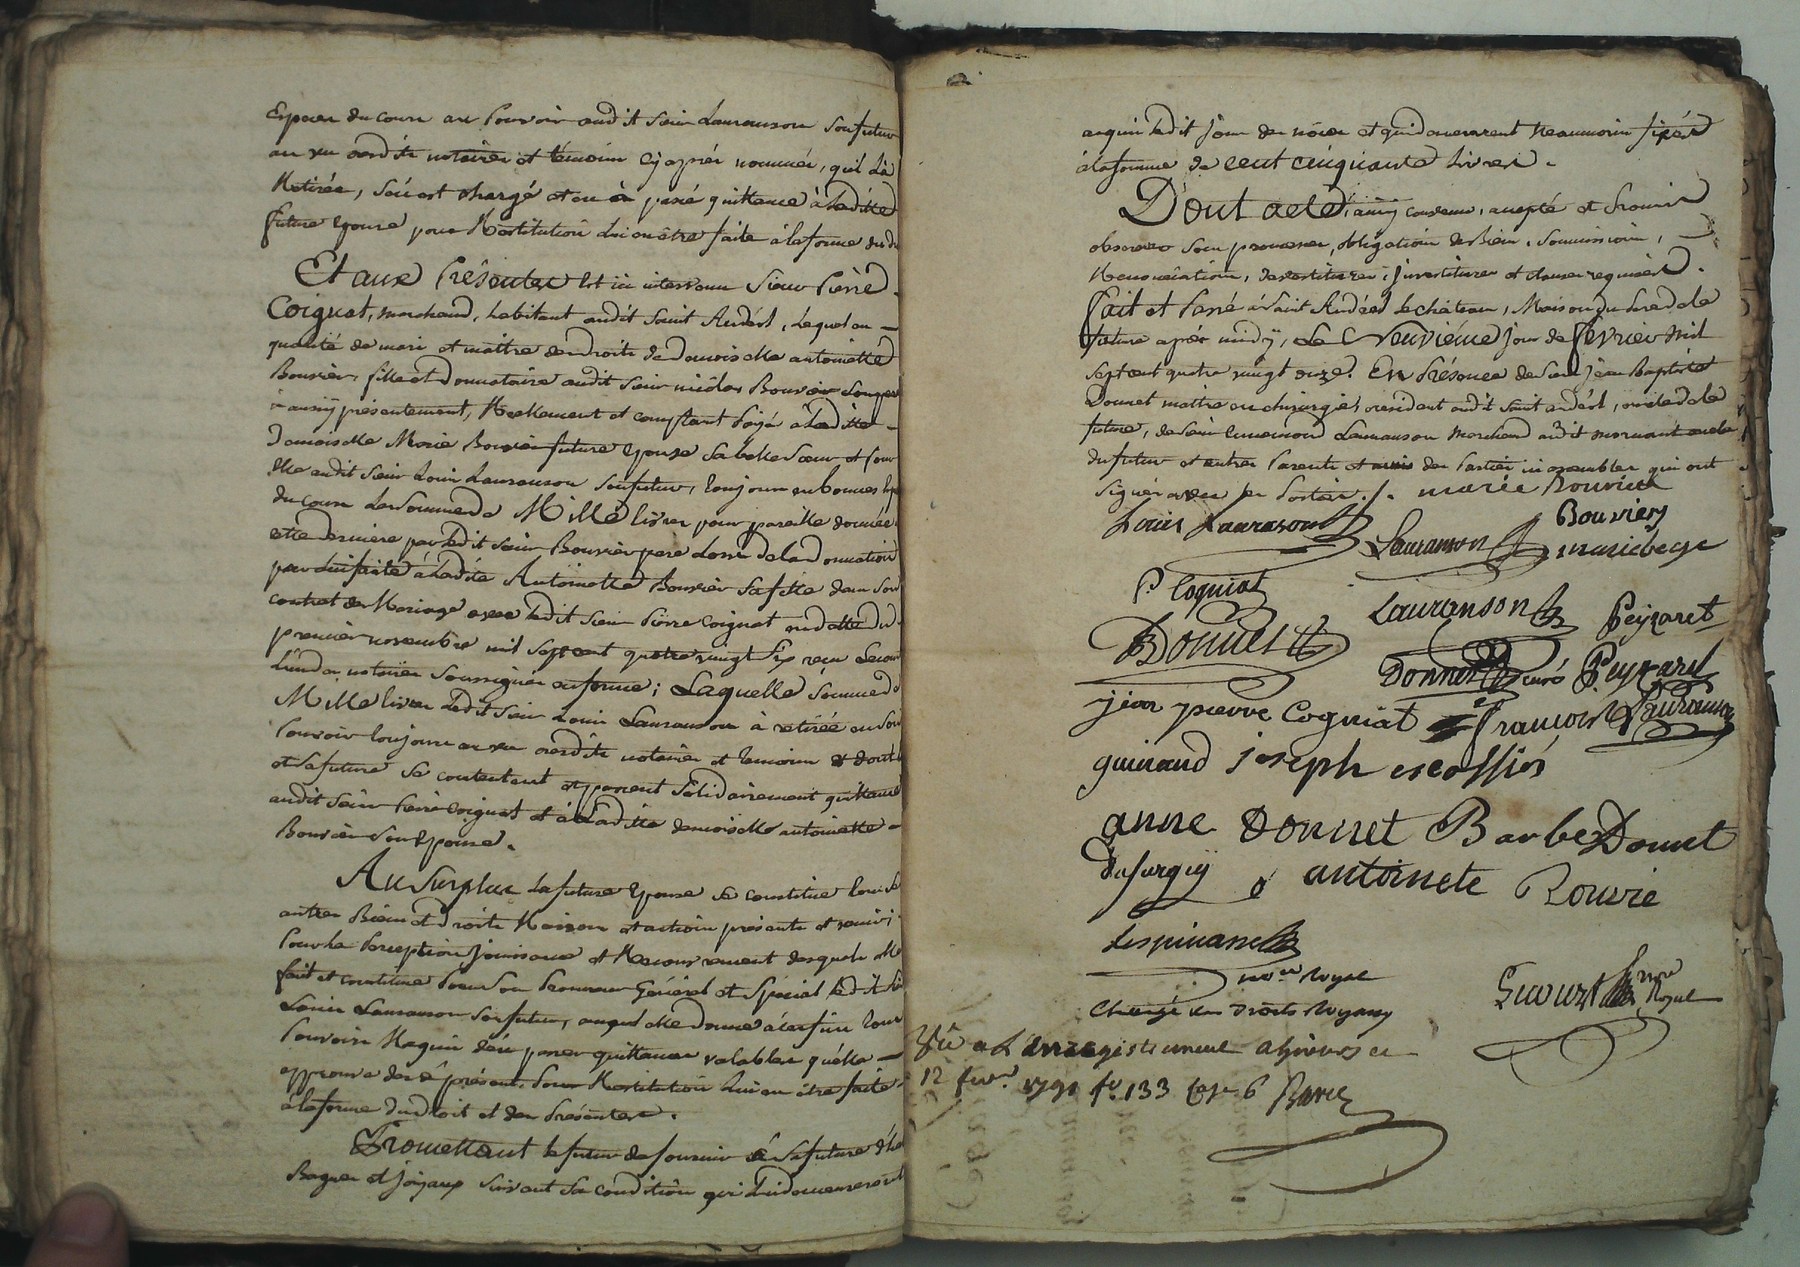 Especes du cours au pouvoir dudit sieur Lauranson son futur
au vu desdits notaires et témoins cy après nommés, qui l'a
Retirée, s'en est chargé et en a passé quittance à laditte
future épouse pour Restitution lui en être faite à la forme du d
Et aux Présentes Est ici intervenu Sieur Pierre
Coignat, marchand, habitant audit Saint Andéol, lequel en
qualité de mari et maître des droits de demoiselle antoinette
Bouvier, fille et donnataire audit sieur nicolas Bouvier son pere
a aussy présentement, Réellement et comptant payé à laditte
demoiselle Marie Bouvier future épouse sa belle sœur et pour
elle audit sieur Louis Lauranson son futur, toujours en bonnes Esp
du cours la somme de Mille livres pour pareille donnée
cette derniere par ledit sieur Bouvier pere lors de la donnation
par lui faite à ladite Antoinette Bouvier sa fille dans son
contrat de Mariage avec ledit sieur Pierre Coignat en datte du
premier novembre mil sept cent quatre vingt six reçu Secou
l'un des notaires soussignés en forme ; Laquelle somme de
Mille livres ledit sieur Louis Lauranson à retirée en son
Pouvoir toujours au vu desdits notaires et temoins et dont
et la future se contentent et passent solidairement quittance
audit sieur Pierre Coignat et à laditte demoiselle antoinette
Bouvier son épouse.
Au Surplus la future épouse se constitue tous se
autres Biens et droits Noms Raisons et actions présents et avenir
Pour la Perception jouissance et Recouvrement desquels elle
fait et constitue pour son Procureur Général et Spécial ledit si
Louis Lauranson son futur, auquel elle donne à ces fins tous
Pouvoirs Requis d'en passer quittances valables qu'elle
approuve dès à présent. sous Restitution lui en être faite
à la forme du droit et des Présentes.
Promettant le futur de fournir à sa future d'ha
Bagues et joyaux suivant sa condition qui lui demeureront
acquis ledit jour des nôces et qui demeurent neanmoins fixés
à la somme de cent cinquante livres.
Dont acte, ainsy convenu, accepté et promis
observer sous promesses, obligation de Biens, soumissions,
Renonciations, devestitures, jnvestitures et clauses requises.
Fait et Passé à Saint Andéol le château, Maison du Pere de la
future après midy, Le Neuviéme jour de fevrier mil
sept cent quatre vingt onze. En Présence de sieur jean Baptiste
Donnet maître en chirurgie, resident audit saint andéol, oncle de la
future, de sieur Lauranson marchand audit mornant oncle
du futur et autres Parents et amis des Parties ici assemblés qui ont
signés avec les Parties ./. marie Bouvier
Louis Lauranson Lauranson Bouvier
marie bege
P. Cogniat Lauranson Peyzaret
Donnet Donnet curé Peyzaret
jean pierre Cogniat Francois Lauranson
guinand joseph escoffier
anne Donnet Barbe Donnet
Dufurgey antoinete Bouvie
Lespinasse
no.re Royal
Chargé des Droits Royaux
Secouzt no.re Royal
Vu a l'enregistrement a givors ce
12 fevr. 1791 f° 133 Cse 6